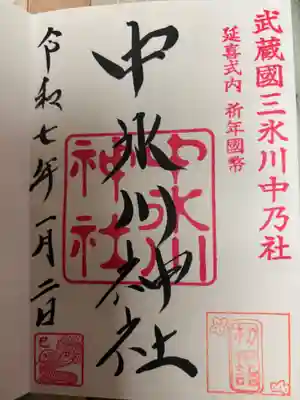 武蔵國三氷川中乃社
延喜式内 祈年國幣
中氷川神社
中氷川
神社
令和七年一月二日
初詣
巳